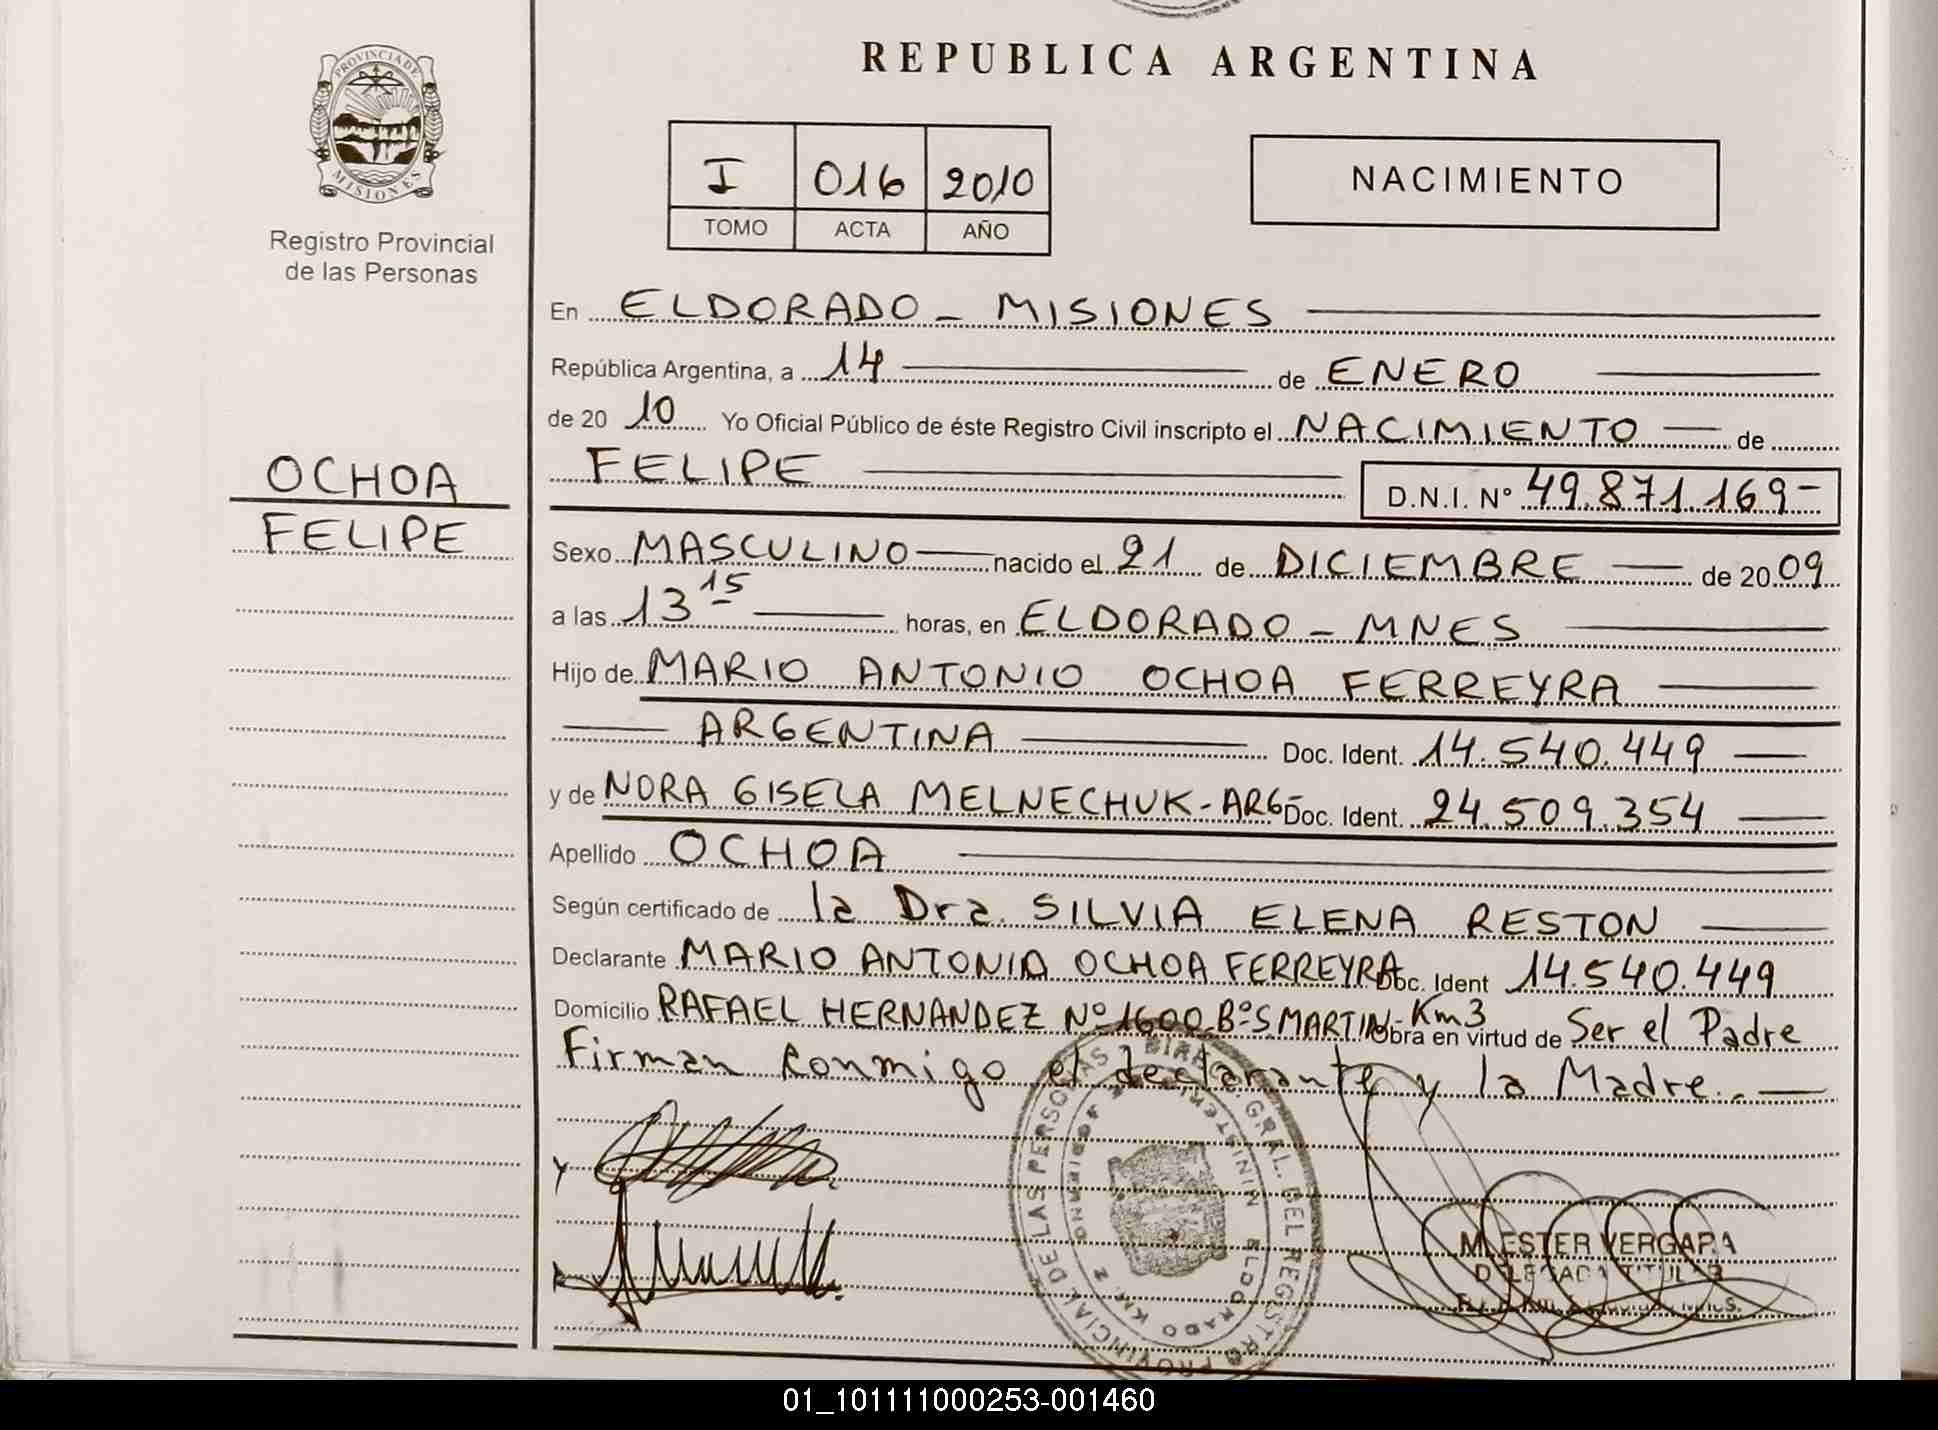 REPUBLICA ARGENTINA
PROVINCIA DE MISIONES
Registro Provincial
de las Personas
I 016 2010
TOMO ACTA AÑO
NACIMIENTO
OCHOA
FELIPE
En ELDORADO - MISIONES
República Argentina, a 14 de ENERO
de 20 10 Yo Oficial Público de éste Registro Civil inscripto el NACIMIENTO de
FELIPE D.N.I. N° 49.871.169-
Sexo MASCULINO nacido el 21 de DICIEMBRE de 20 09
a las 13 15 horas, en ELDORADO - MNES
Hijo de MARIO ANTONIO OCHOA FERREYRA
ARGENTINA Doc. Ident. 14.540.449
y de NORA GISELA MELNECHUK - ARG- Doc. Ident. 24.509.354
Apellido OCHOA
Según certificado de la Dra. SILVIA ELENA RESTON
Declarante MARIO ANTONIO OCHOA FERREYRA Doc. Ident 14.540.449
Domicilio RAFAEL HERNANDEZ Nº 1600 Bº S MARTIN - Km 3 Obra en virtud de Ser el Padre
Firman Conmigo el declarante y la Madre.-
DIREC. GRAL. DEL REGISTRO PROVINCIAL DE LAS PERSONAS
ELDORADO KM. 2
ESTER VERGARA
DELEGADA TITULAR
01_101111000253-001460